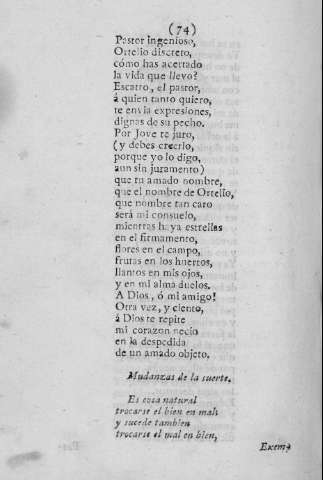 (74)
Pastor ingenioso,
Ortelio discreto,
cómo has acertado
la vida que llevo?
Escarro, el pastor,
á quien tanto quiero,
te envia expresiones,
dignas de su pecho.
Por Jove te juro,
(y debes creerlo,
porque yo lo digo,
aun sin juramento)
que tu amado nombre,
que el nombre de Ortelio,
que nombre tan caro
será mi consuelo,
mientras haya estrellas
en el firmamento,
flores en el campo,
frutas en los huertos,
llantos en mis ojos,
y en mi alma duelos.
A Dios, ó mi amigo!
Otra vez, y ciento,
á Dios te repite
mi corazon necio
en la despedida
de un amado objeto.
Mudanzas de la suerte.
Es cosa natural
trocarse el bien en mal;
y sucede tambien
trocarse el mal en bien,
Exem-